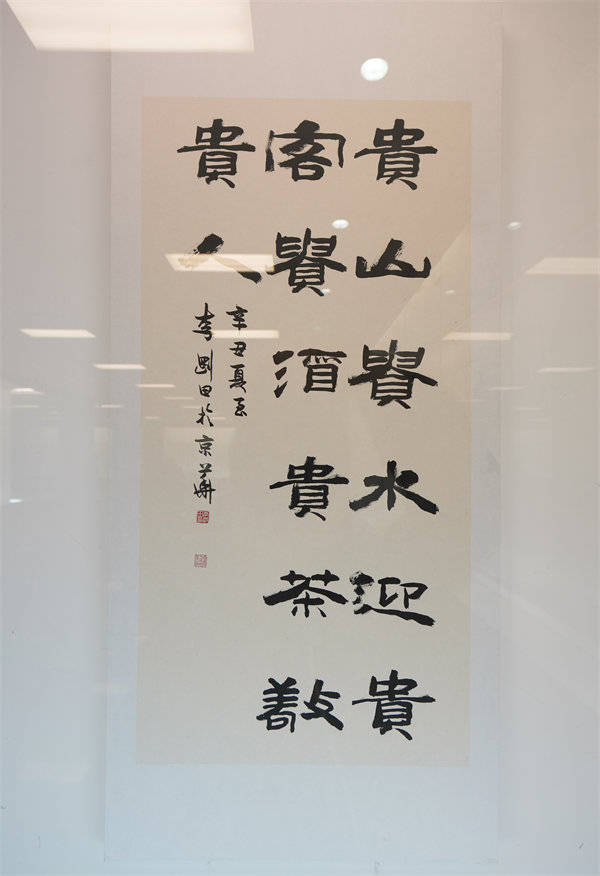 貴山貴水迎貴
客貴酒貴茶敬
貴人
辛丑夏至
李剛田於京華